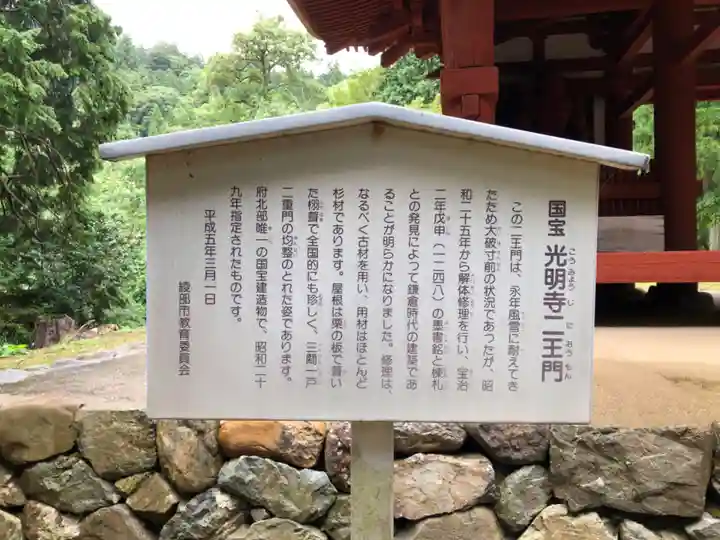 国宝 光明寺二王門
こうみょうじにおうもん
この二王門は、永年風雪に耐えてき
たため大破寸前の状況であつたが、昭
和二十五年から解体修理を行い、宝治
二年戊申(一二四八)の墨書銘と棟札
との発見によって鎌倉時代の建築であ
ることが明らかになりました。修理は、
なるべく古材を用い、用材はほとんど
杉材であります。屋根は栗の板で葺い
た栩葺で全国的にも珍しく、三間一戸
二重門の均整のとれた姿であります。
府北部唯一の国宝建造物で、昭和二十
九年指定されたものです。
平成五年三月一日
綾部市教育委員会